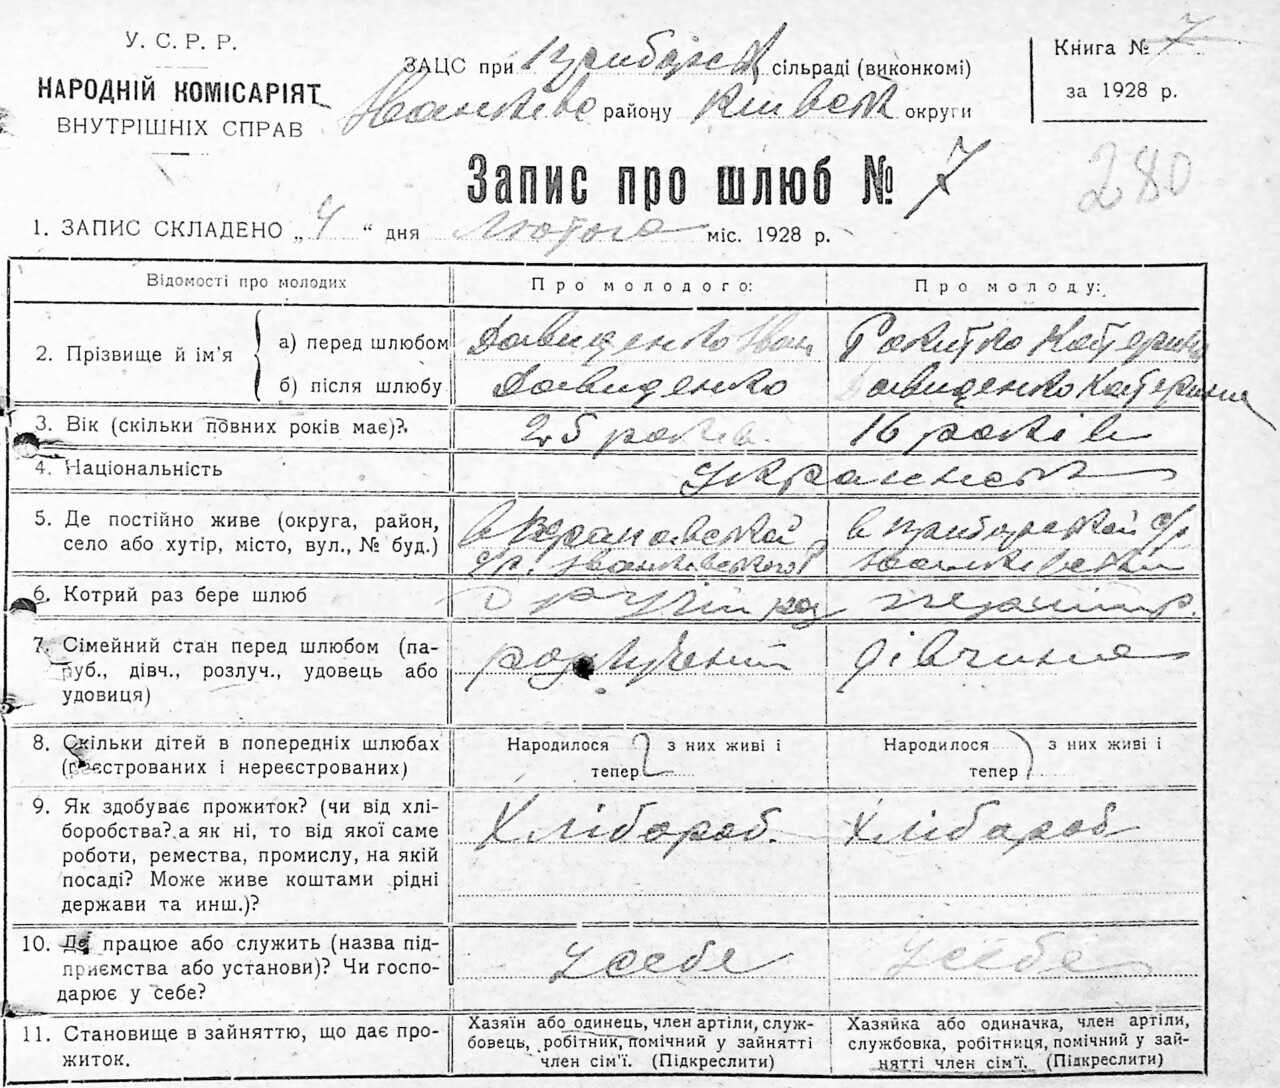 У. С. Р. Р.
НАРОДНІЙ КОМІСАРІЯТ
ВНУТРІШНІХ СПРАВ
ЗАЦС при сільраді (виконкомі)
району округи
Книга № 7
за 1928 р.
Запис про шлюб № 7
280
1. ЗАПИС СКЛАДЕНО „ 4 “ дня лютого міс. 1928 р.
Відомості про молодих
Про молодого:
Про молоду:
2. Прізвище й ім'я
а) перед шлюбом Давиденко Іван Ракитко Катерина
б) після шлюбу Давиденко Давиденко Катерина
3. Вік (скільки повних років має)? 25 років. 16 років
4. Національність
5. Де постійно живе (округа, район, село або хутір, місто, вул., № буд.)
в с/р.
в с/р
6. Котрий раз бере шлюб
7. Сімейний стан перед шлюбом (паруб., дівч., розлуч., удовець або удовиця)
розлучений дівчина
8. Скільки дітей в попередніх шлюбах (реєстрованих і нереєстрованих)
Народилося з них живі і тепер
Народилося з них живі і тепер
9. Як здобуває прожиток? (чи від хліборобства? а як ні, то від якої саме роботи, ремества, промислу, на якій посаді? Може живе коштами рідні держави та инш.)?
Хлібороб. Хлібароб
10. Де працює або служить (назва підприємства або установи)? Чи господарює у себе?
у себе у себе
11. Становище в зайняттю, що дає прожиток.
Хазяїн або одинець, член артіли, службовець, робітник, помічний у зайнятті член сім'ї. (Підкреслити)
Хазяйка або одиначка, член артіли, службовка, робітниця, помічний у зайнятті член сім'ї. (Підкреслити)